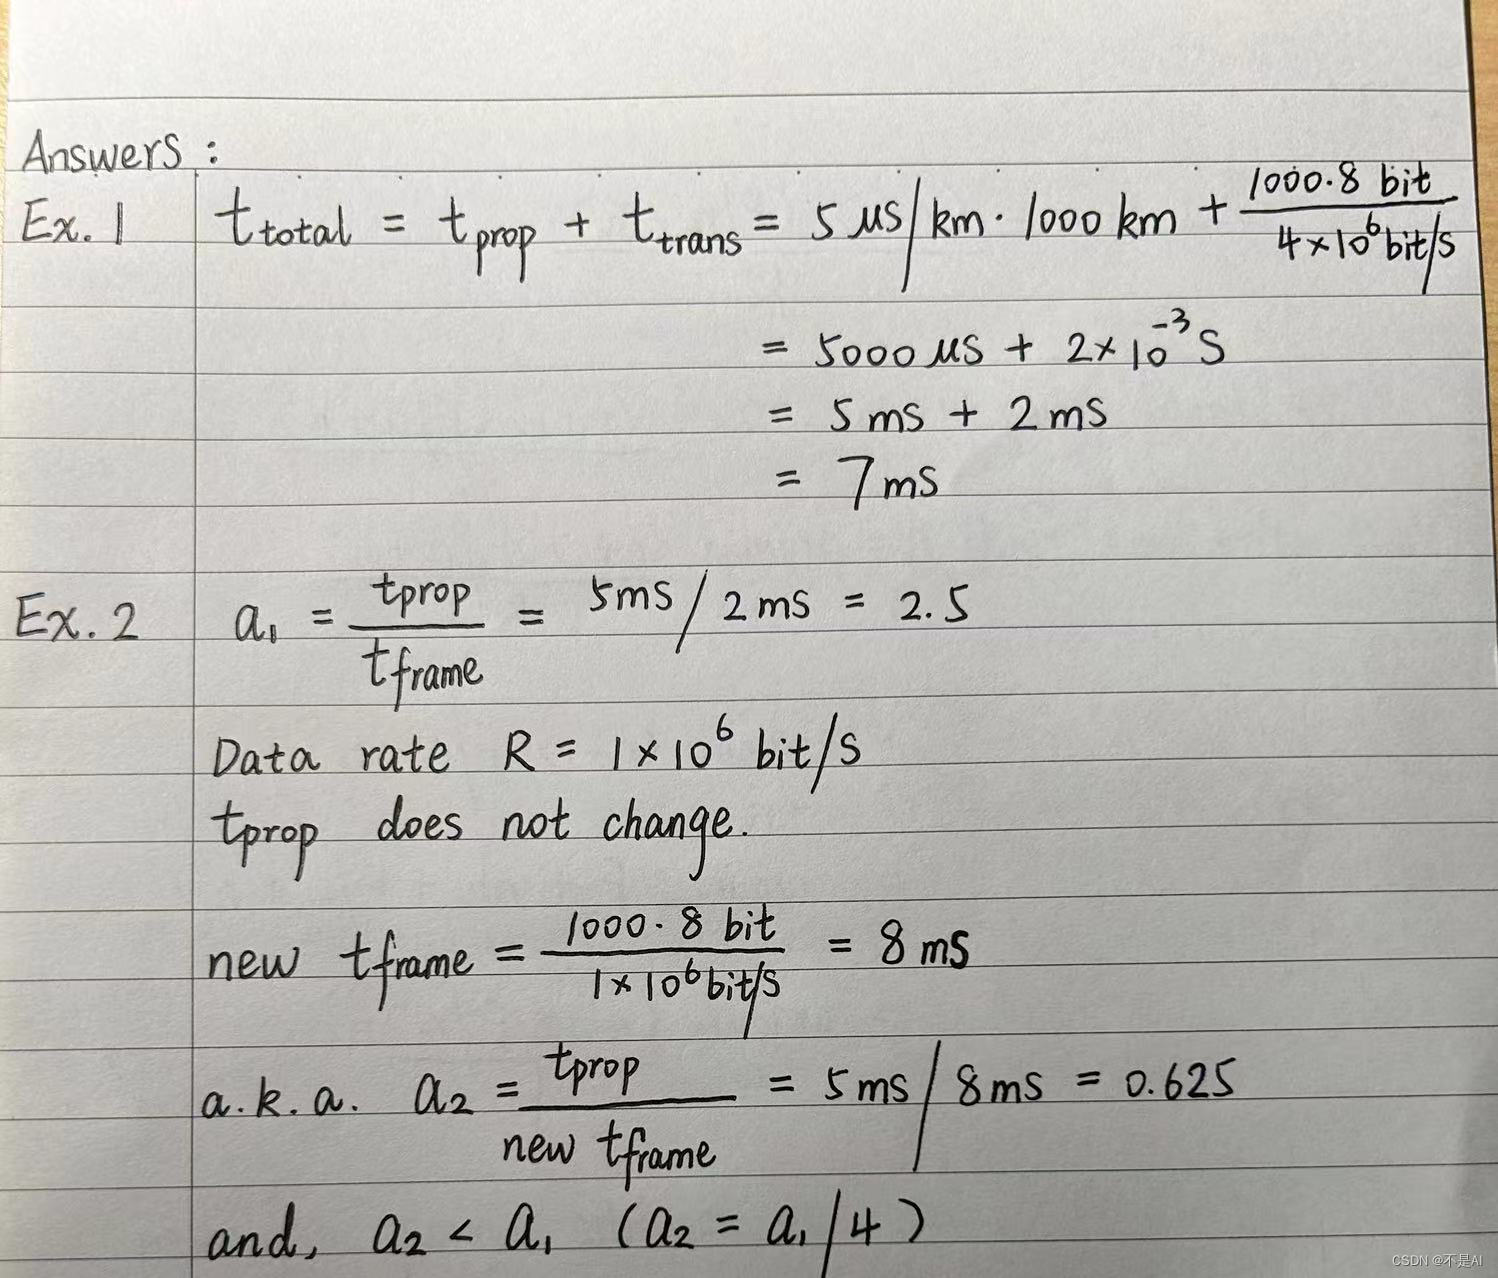 Answers :
Ex. 1 t total = t prop + t trans = 5 μs/km · 1000 km + 1000·8 bit / 4×10⁶ bit/s
= 5000 μs + 2×10⁻³ s
= 5 ms + 2 ms
= 7 ms
Ex. 2 a₁ = tprop / tframe = 5ms / 2ms = 2.5
Data rate R = 1×10⁶ bit/s
tprop does not change.
new tframe = 1000·8 bit / 1×10⁶ bit/s = 8 ms
a.k.a. a₂ = tprop / new tframe = 5 ms / 8 ms = 0.625
and, a₂ < a₁ (a₂ = a₁/4)
CSDN @不是AI